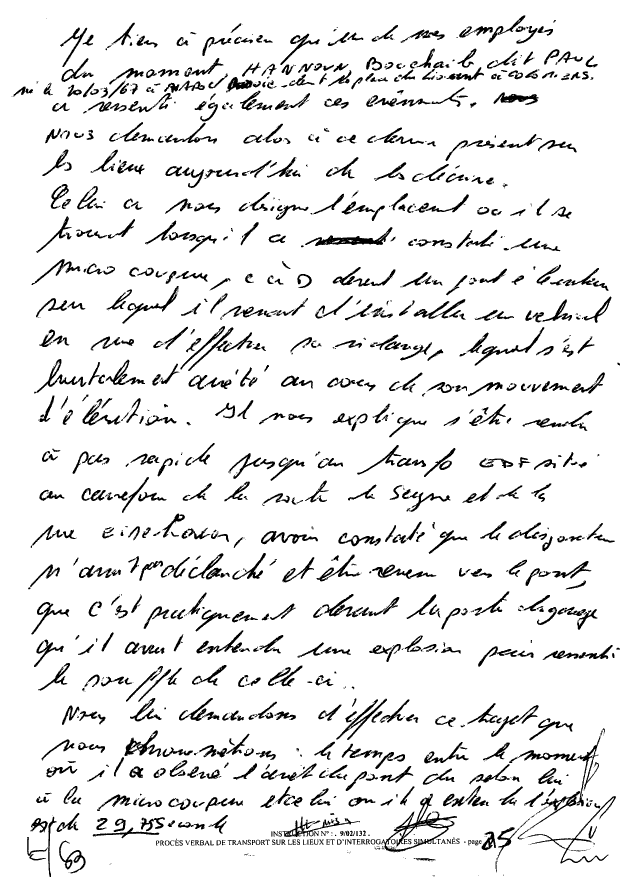 Je tiens à préciser qu'un de nos employés
du moment, HANNOUN, Bouchaib, dit PAUL
né le 20/03/67 à
a ressenti également ces évènements.
Nous demandons alors à ce dernier présent sur
les lieux aujourd'hui de les décrire.
Celui ci nous désigne l'emplacement où il se
trouvait lorsqu'il a constaté une
micro coupure, c à D devant un pont élévateur
sur lequel il venait d'installer un véhicul
en vue d'effectuer sa vidange, lequel s'est
brutalement arrêté au cours de son mouvement
d'élévation. Il nous explique s'être rendu
à pas rapide jusqu'au transfo EDF situé
au carrefour de la route de Seysse et de la
rue Eisenhower, avoir constaté que le disjoncteur
n'avait pas déclanché et être revenu vers le pont,
que c'est pratiquement devant la porte du garage
qu'il avait entendu une explosion puis ressenti
le souffle de celle-ci.
Nous lui demandons d'effectuer ce trajet que
nous chronométrons : le temps entre le moment
où il a observé l'arrêt du pont du selon lui
à la microcoupure et celui où il a entendu l'explosion
est de 29,75 seconde
INSTRUCTION N° : . 9/02/132 .
PROCÈS VERBAL DE TRANSPORT SUR LES LIEUX ET D'INTERROGATOIRES SIMULTANÉS - page 25